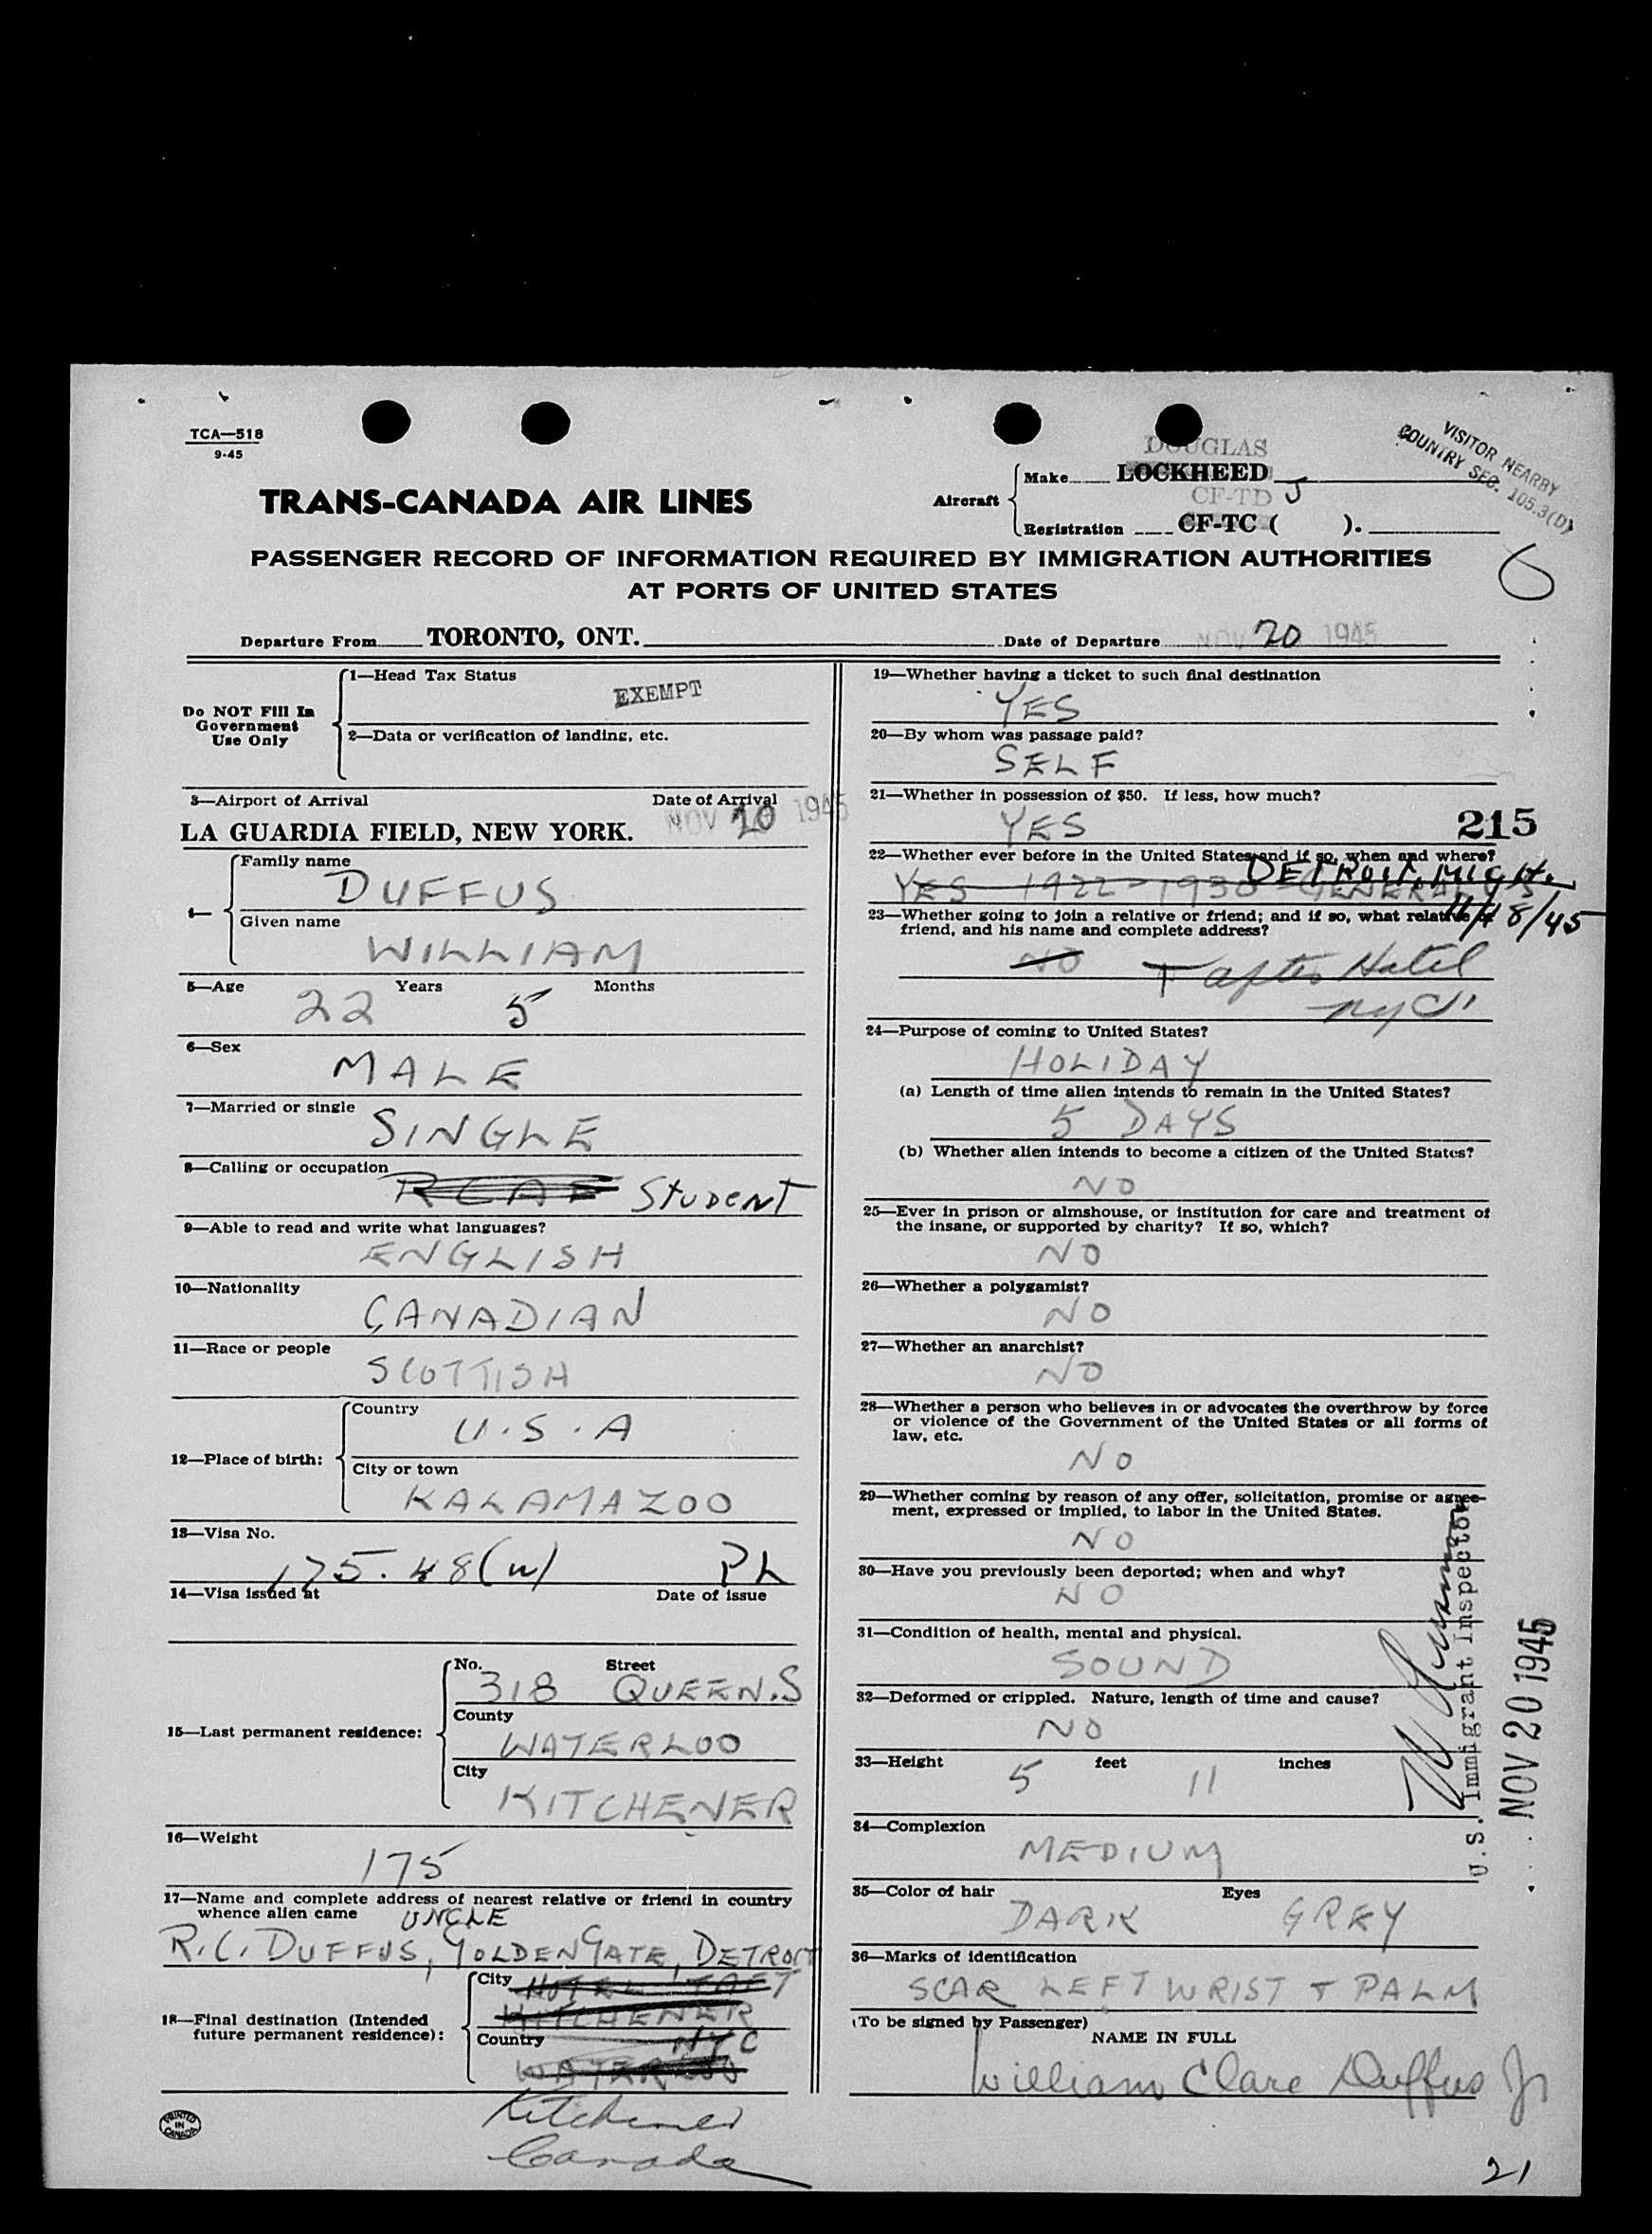 TCA—518
9-45
VISITOR NEARBY
COUNTRY SEC. 105.3(D)
TRANS-CANADA AIR LINES
Aircraft
DOUGLAS
Make LOCKHEED
CF-TD J
Registration CF-TC ( ).
PASSENGER RECORD OF INFORMATION REQUIRED BY IMMIGRATION AUTHORITIES
AT PORTS OF UNITED STATES
6
Departure From TORONTO, ONT. Date of Departure NOV 20 1945
Do NOT Fill In
Government
Use Only
1—Head Tax Status
EXEMPT
2—Data or verification of landing, etc.
3—Airport of Arrival Date of Arrival
LA GUARDIA FIELD, NEW YORK. NOV 20 1945
4—
Family name
DUFFUS
Given name
WILLIAM
5—Age 22 Years 5 Months
6—Sex
MALE
7—Married or single
SINGLE
8—Calling or occupation
RCAF STUDENT
9—Able to read and write what languages?
ENGLISH
10—Nationality
CANADIAN
11—Race or people
SCOTTISH
12—Place of birth:
Country
U.S.A
City or town
KALAMAZOO
13—Visa No.
175.48(w)
14—Visa issued at Date of issue
15—Last permanent residence:
No. Street
318 QUEEN.S
County
WATERLOO
City
KITCHENER
16—Weight
175
17—Name and complete address of nearest relative or friend in country
whence alien came UNCLE
R.C. DUFFUS, GOLDENGATE, DETROIT
18—Final destination (Intended
future permanent residence):
City HOTEL TAFT
KITCHENER
Country NYC
WATERLOO
Kitchener
Canada
PRINTED
IN
CANADA
19—Whether having a ticket to such final destination
YES
20—By whom was passage paid?
SELF
21—Whether in possession of $50. If less, how much?
YES 215
22—Whether ever before in the United States and if so, when and where?
DETROIT, MICH.
YES 1922-1930 GENERAL
11/18/45
23—Whether going to join a relative or friend; and if so, what relative or
friend, and his name and complete address?
NO Hotel
NYC
24—Purpose of coming to United States?
HOLIDAY
(a) Length of time alien intends to remain in the United States?
5 DAYS
(b) Whether alien intends to become a citizen of the United States?
NO
25—Ever in prison or almshouse, or institution for care and treatment of
the insane, or supported by charity? If so, which?
NO
26—Whether a polygamist?
NO
27—Whether an anarchist?
NO
28—Whether a person who believes in or advocates the overthrow by force
or violence of the Government of the United States or all forms of
law, etc.
NO
29—Whether coming by reason of any offer, solicitation, promise or agree-
ment, expressed or implied, to labor in the United States.
NO
30—Have you previously been deported; when and why?
NO
31—Condition of health, mental and physical.
SOUND
32—Deformed or crippled. Nature, length of time and cause?
NO
33—Height 5 feet 11 inches
34—Complexion
MEDIUM
35—Color of hair Eyes
DARK GREY
36—Marks of identification
SCAR LEFT WRIST + PALM
(To be signed by Passenger)
NAME IN FULL
William Clare Duffus Jr
U.S. Immigrant Inspector
NOV 20 1945
21